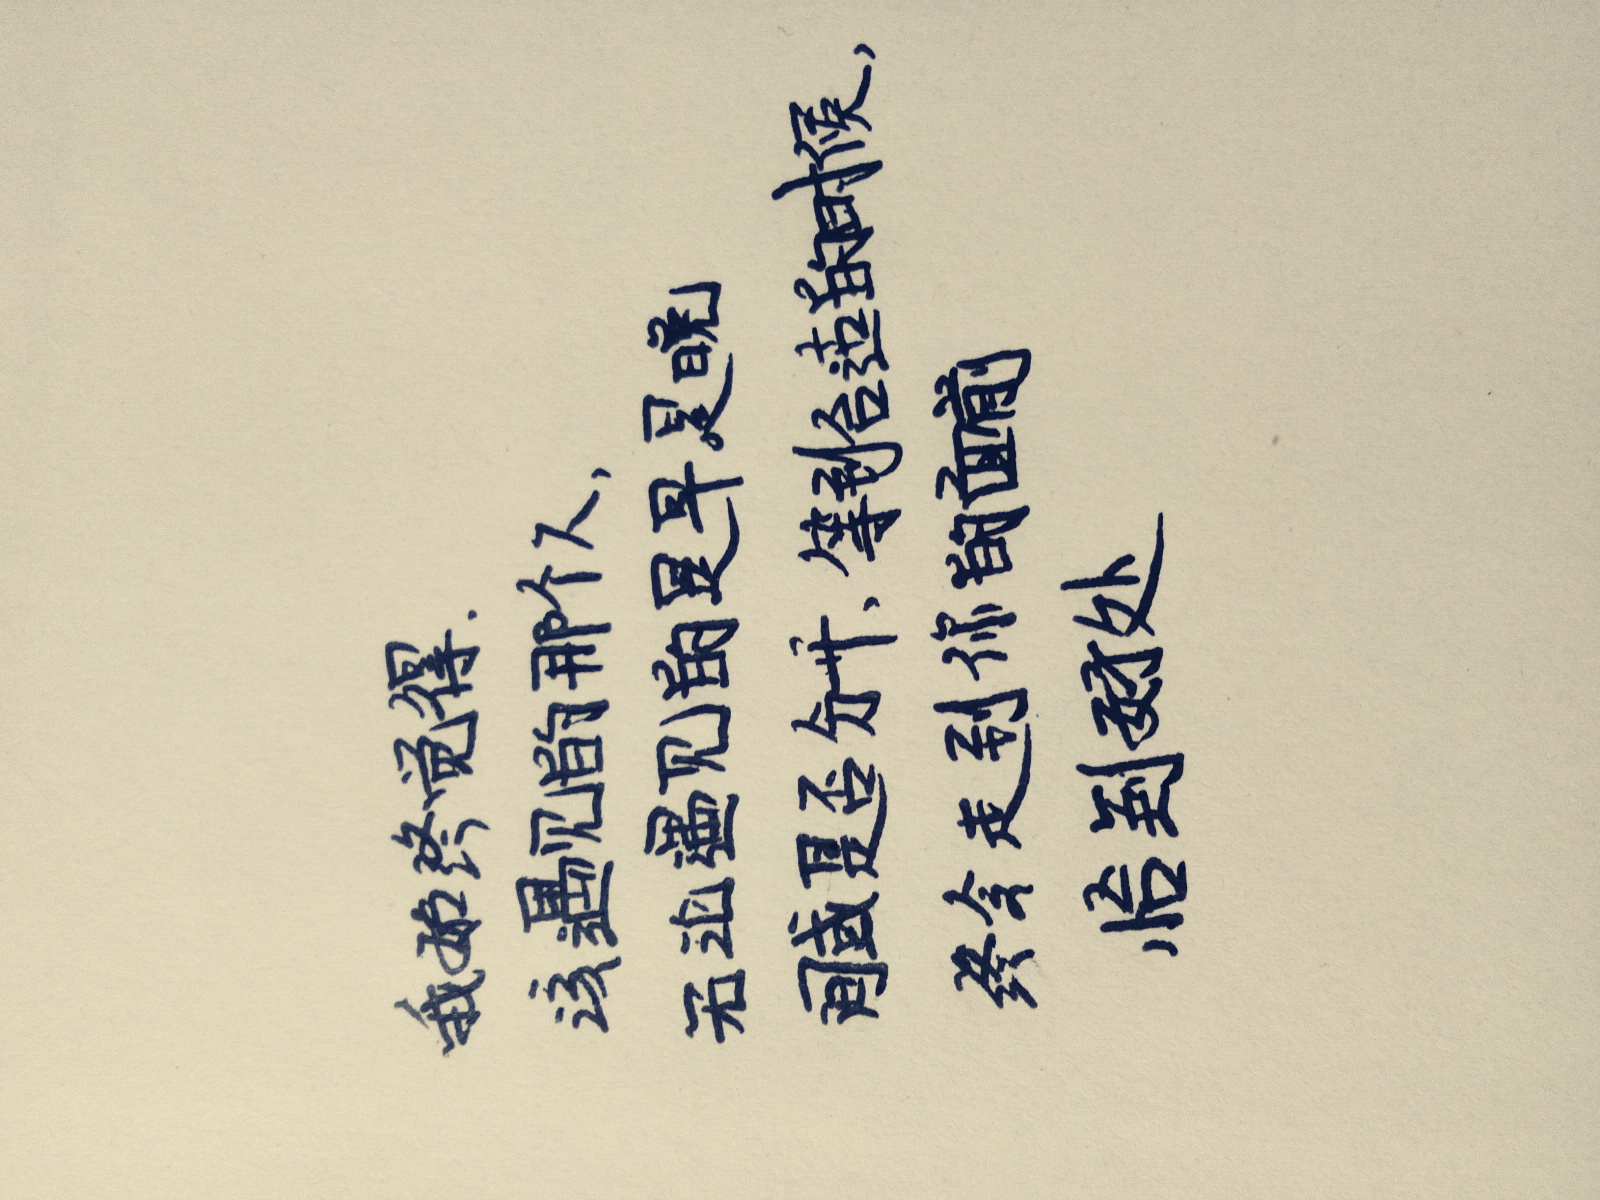 我始终觉得.
该遇见的那个人,
无论遇见的是早是晚
间或是否分开,等到合适的时候,
终会走到你的面前
恰到好处